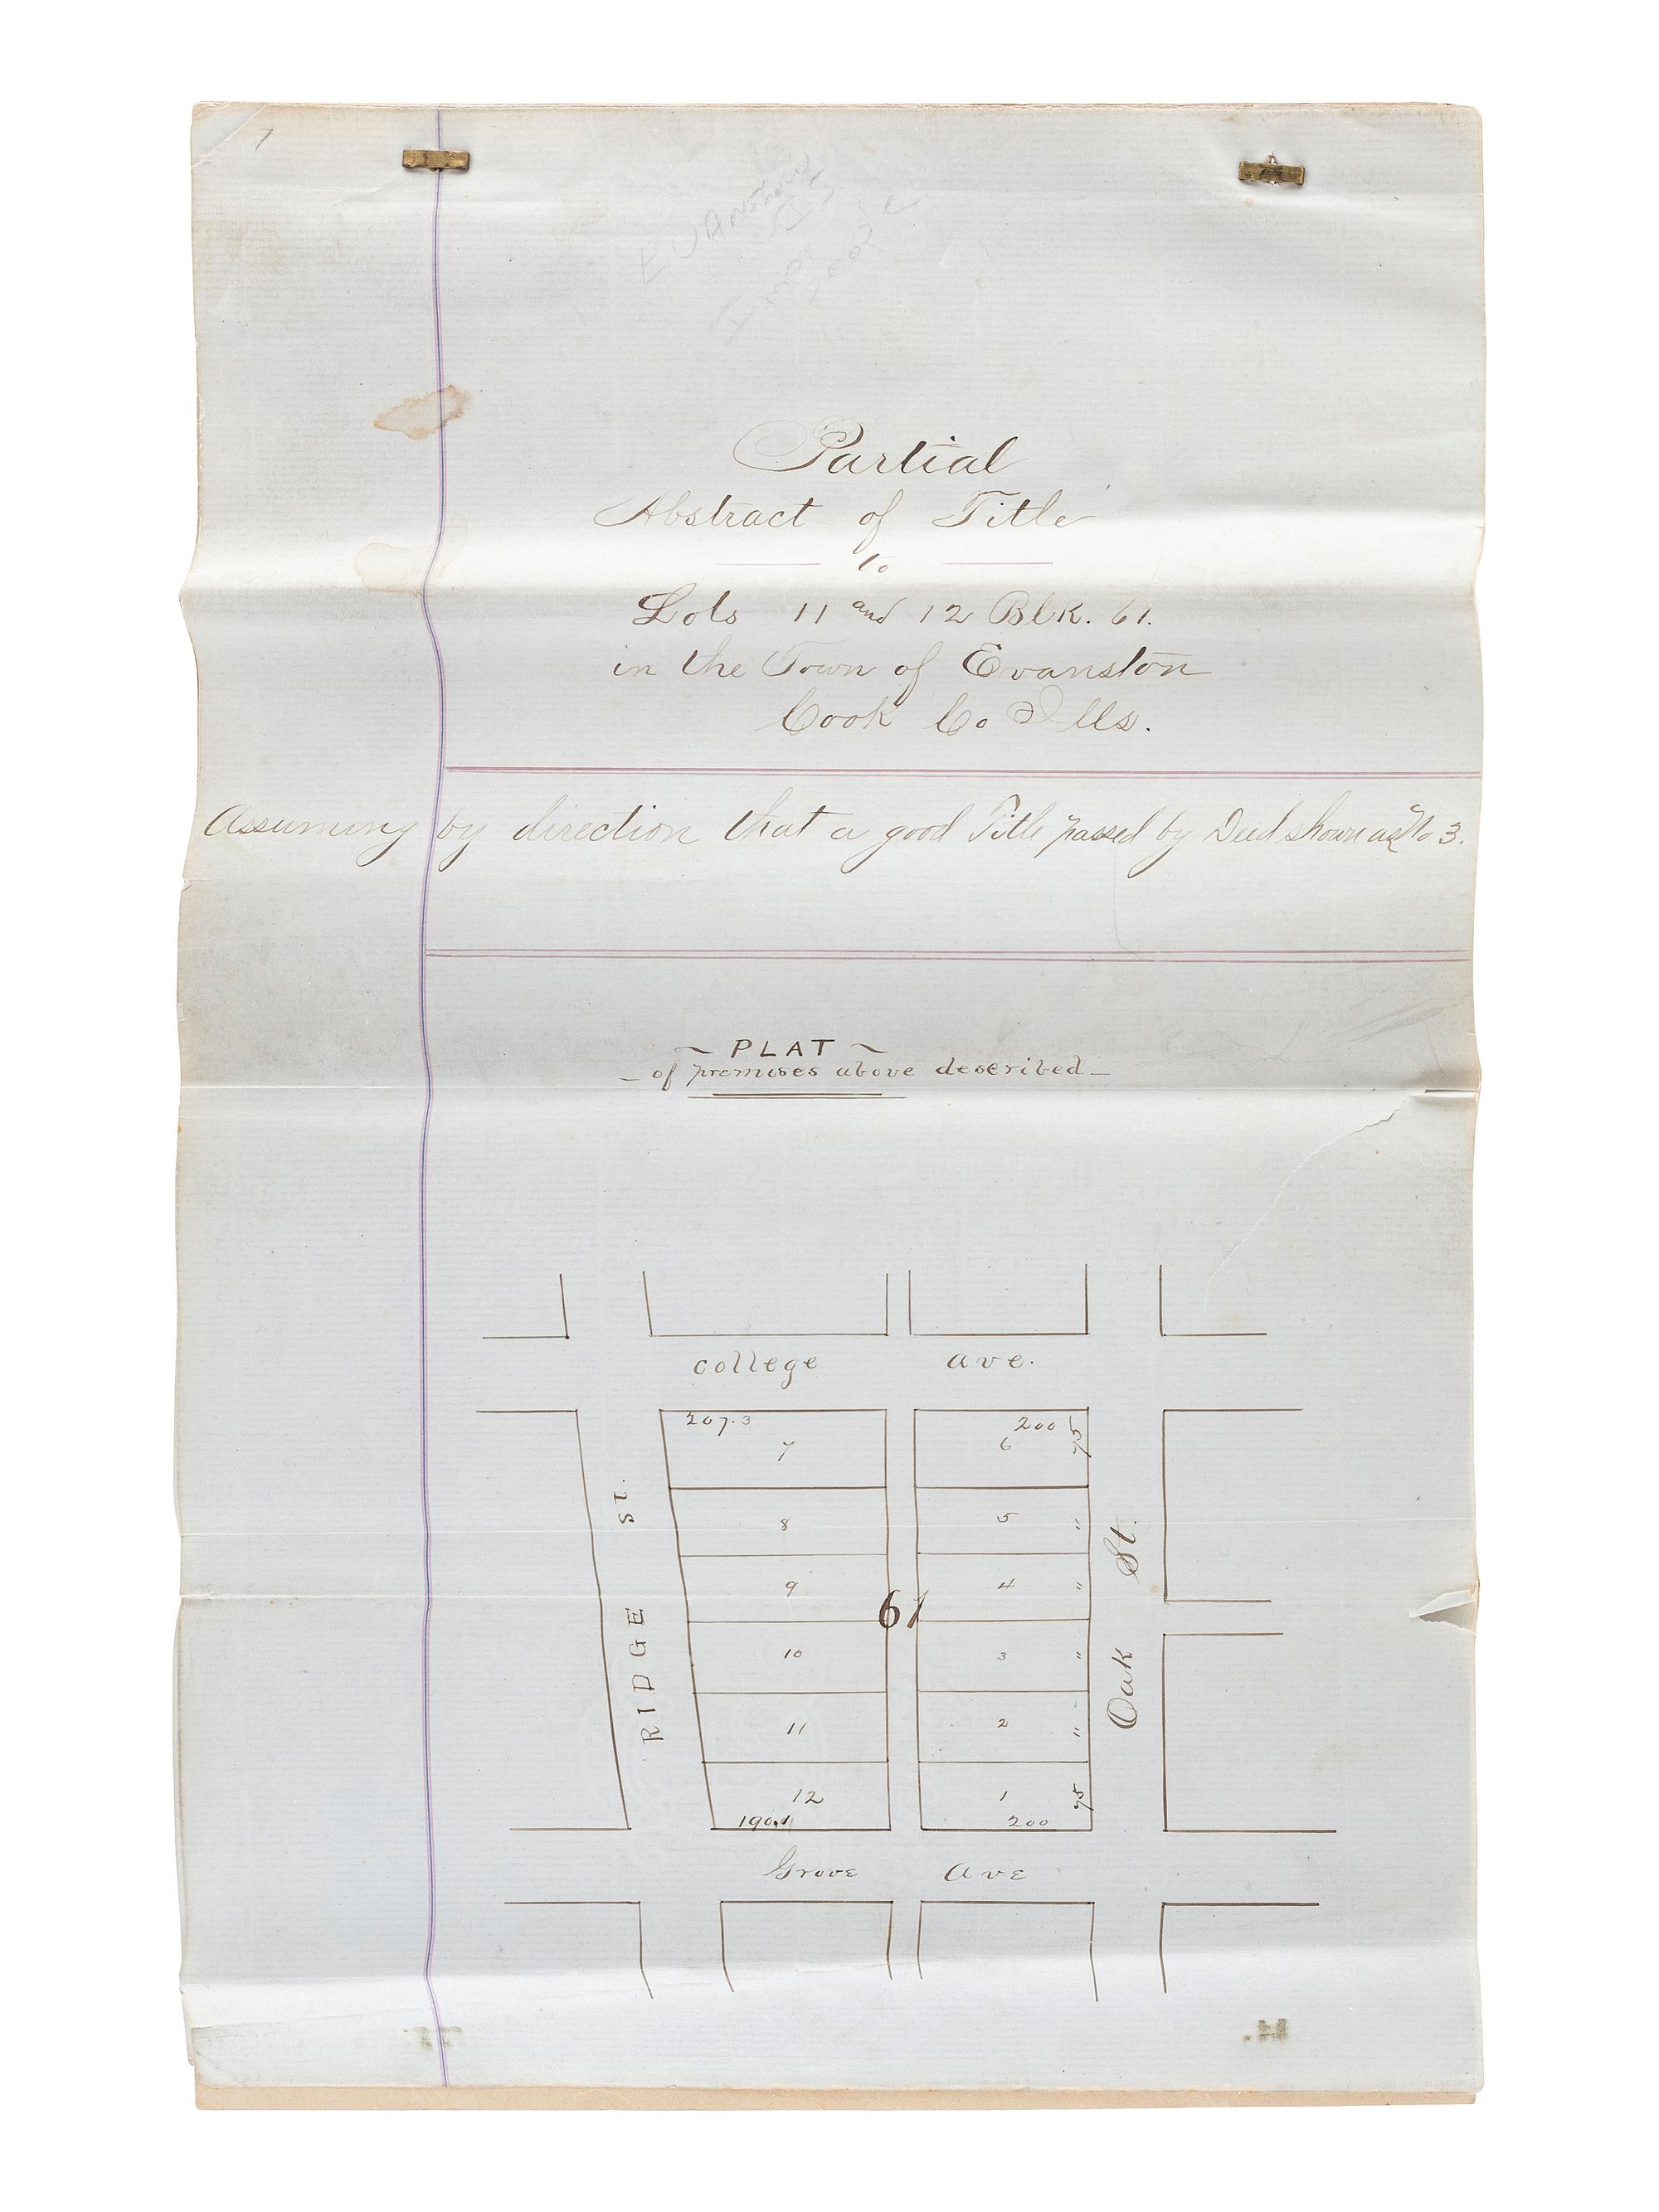 Partial
Abstract of Title
to
Lots 11 and 12 Blk. 61.
in the Town of Evanston
Cook Co Ills.
Assuming by direction that a good Title passed by Deed shown as No 3.
~ PLAT ~
_ of premises above described _
College Ave.
207.3 200 75
7 6
8 5 "
9 4 "
61
10 3 "
11 2 "
12 1 75
190.1 200
RIDGE St.
Oak St.
Grove Ave